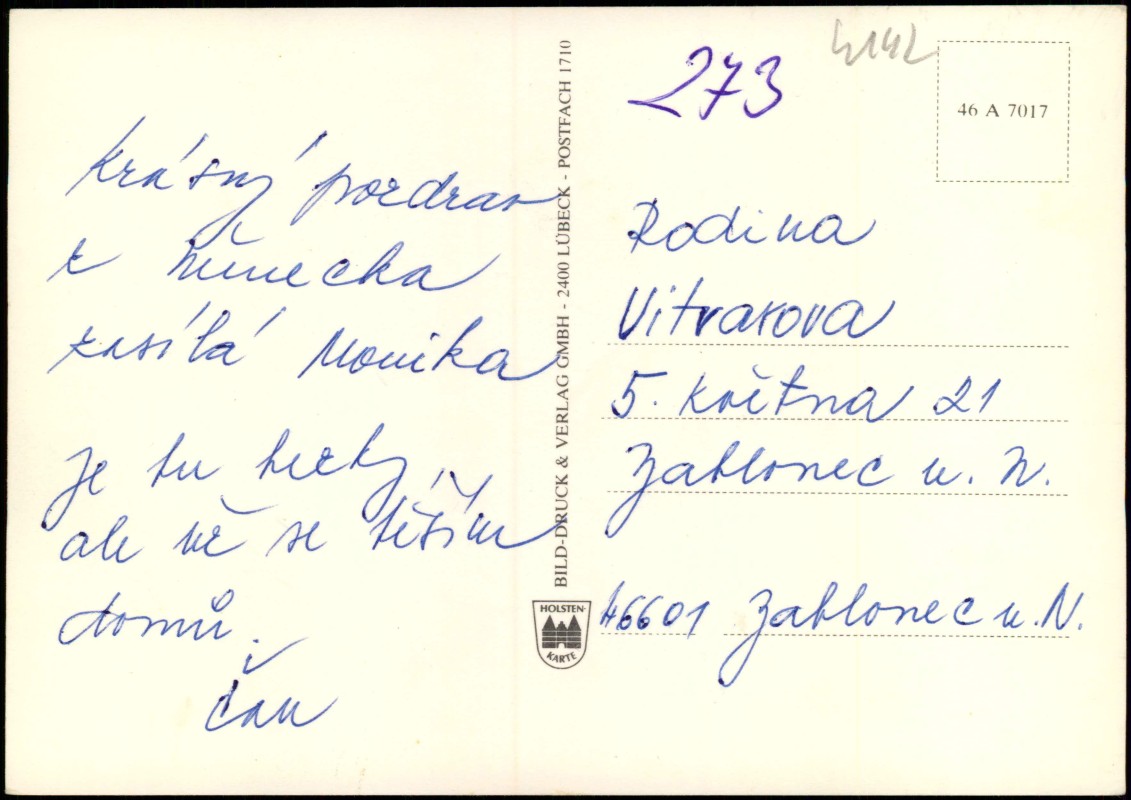 Krásný pozdrav
z Německa
zasílá Monika
je tu hezky,
ale už se těším
domů.
Čau
BILD-DRUCK & VERLAG GMBH - 2400 LÜBECK - POSTFACH 1710
HOLSTEN-
KARTE
4142
273
46 A 7017
Rodina
5. května 21
Jablonec u. N.
46601 Jablonec u. N.